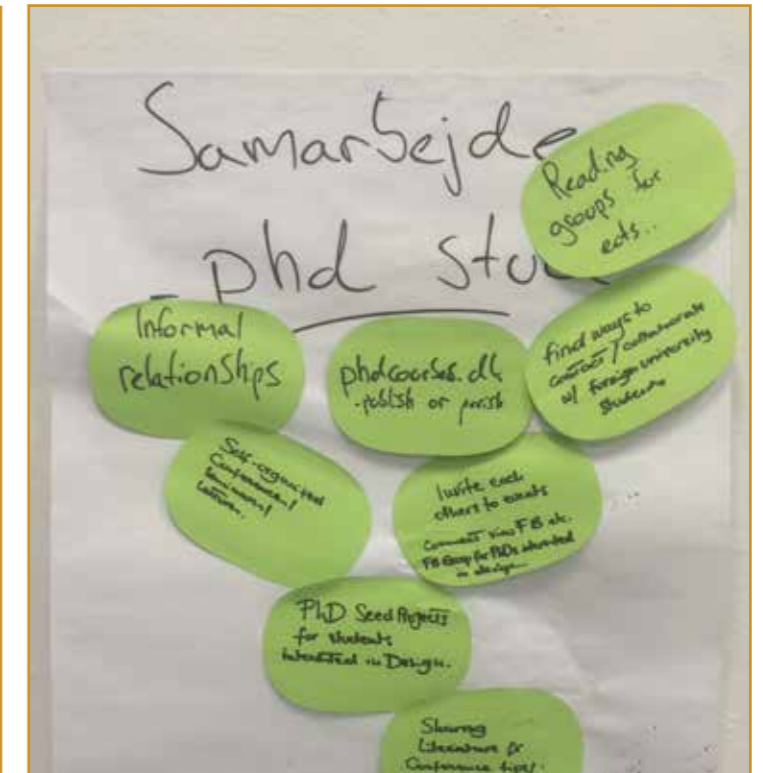 Samarbejde
phd stu
Reading
groups for
ects..
Informal
relationships
phdcourses.dk
.publish or perish
find ways to
connect/collaborate
w/ foreign university
students
Self-organised
Conferences/
Seminars/
Invite each
others to events
Connect via FB etc.
FB Group for PhDs interested
in design...
PhD Seed Projects
for students
interested in Design.
Sharing
Literature &
Conference tips.